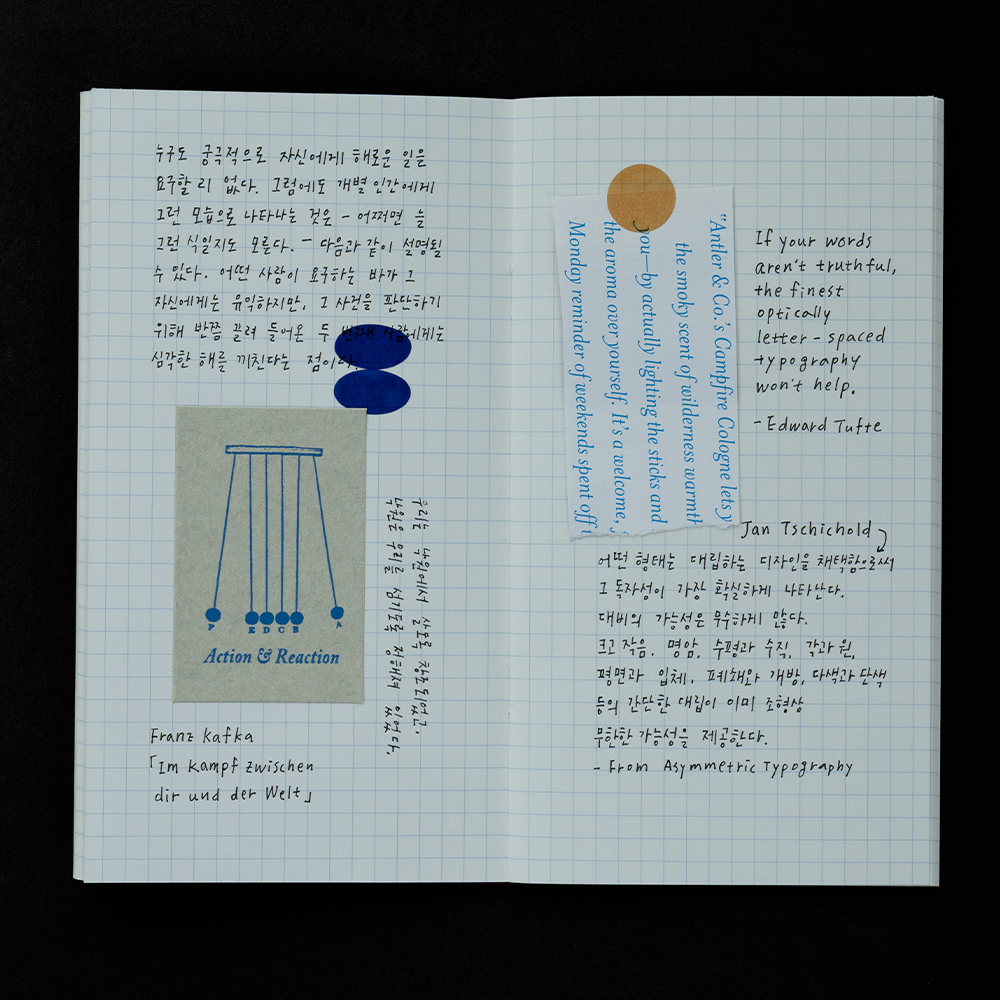 누구도 궁극적으로 자신에게 해로운 일을
요구할 리 없다. 그럼에도 개별 인간에게
그런 모습으로 나타나는 것은 - 어쩌면 늘
그런 식일지도 모른다. - 다음과 같이 설명될
수 있다. 어떤 사람이 요구하는 바가 그
자신에게는 유익하지만, 그 사건을 판단하기
위해 반쯤 끌려 들어온 두 번째 사람에게는
심각한 해를 끼친다는 점이다.
P E D C B A
Action & Reaction
우리는
Franz Kafka
「Im Kampf zwischen
dir und der Welt」
"Antler & Co.'s Campfire Cologne lets y
the smoky scent of wilderness warmth
you—by actually lighting the sticks and
the aroma over yourself. It's a welcome,
Monday reminder of weekends spent off
If your words
aren't truthful,
the finest
optically
letter-spaced
typography
won't help.
- Edward Tufte
Jan Tschichold
어떤 형태는 대립하는 디자인을 채택함으로써
그 독자성이 가장 확실하게 나타난다.
대비의 가능성은 무수하게 많다.
크고 작음, 명암, 수평과 수직, 각과 원,
평면과 입체, 폐쇄와 개방, 다색과 단색
등의 간단한 대립이 이미 조형상
무한한 가능성을 제공한다.
- From Asymmetric Typography